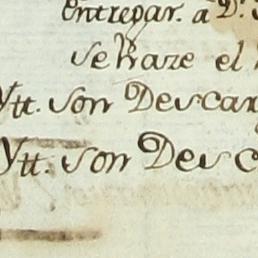 entregar. a D.
se haze el
Ytt. son Descar
Ytt. son Desc